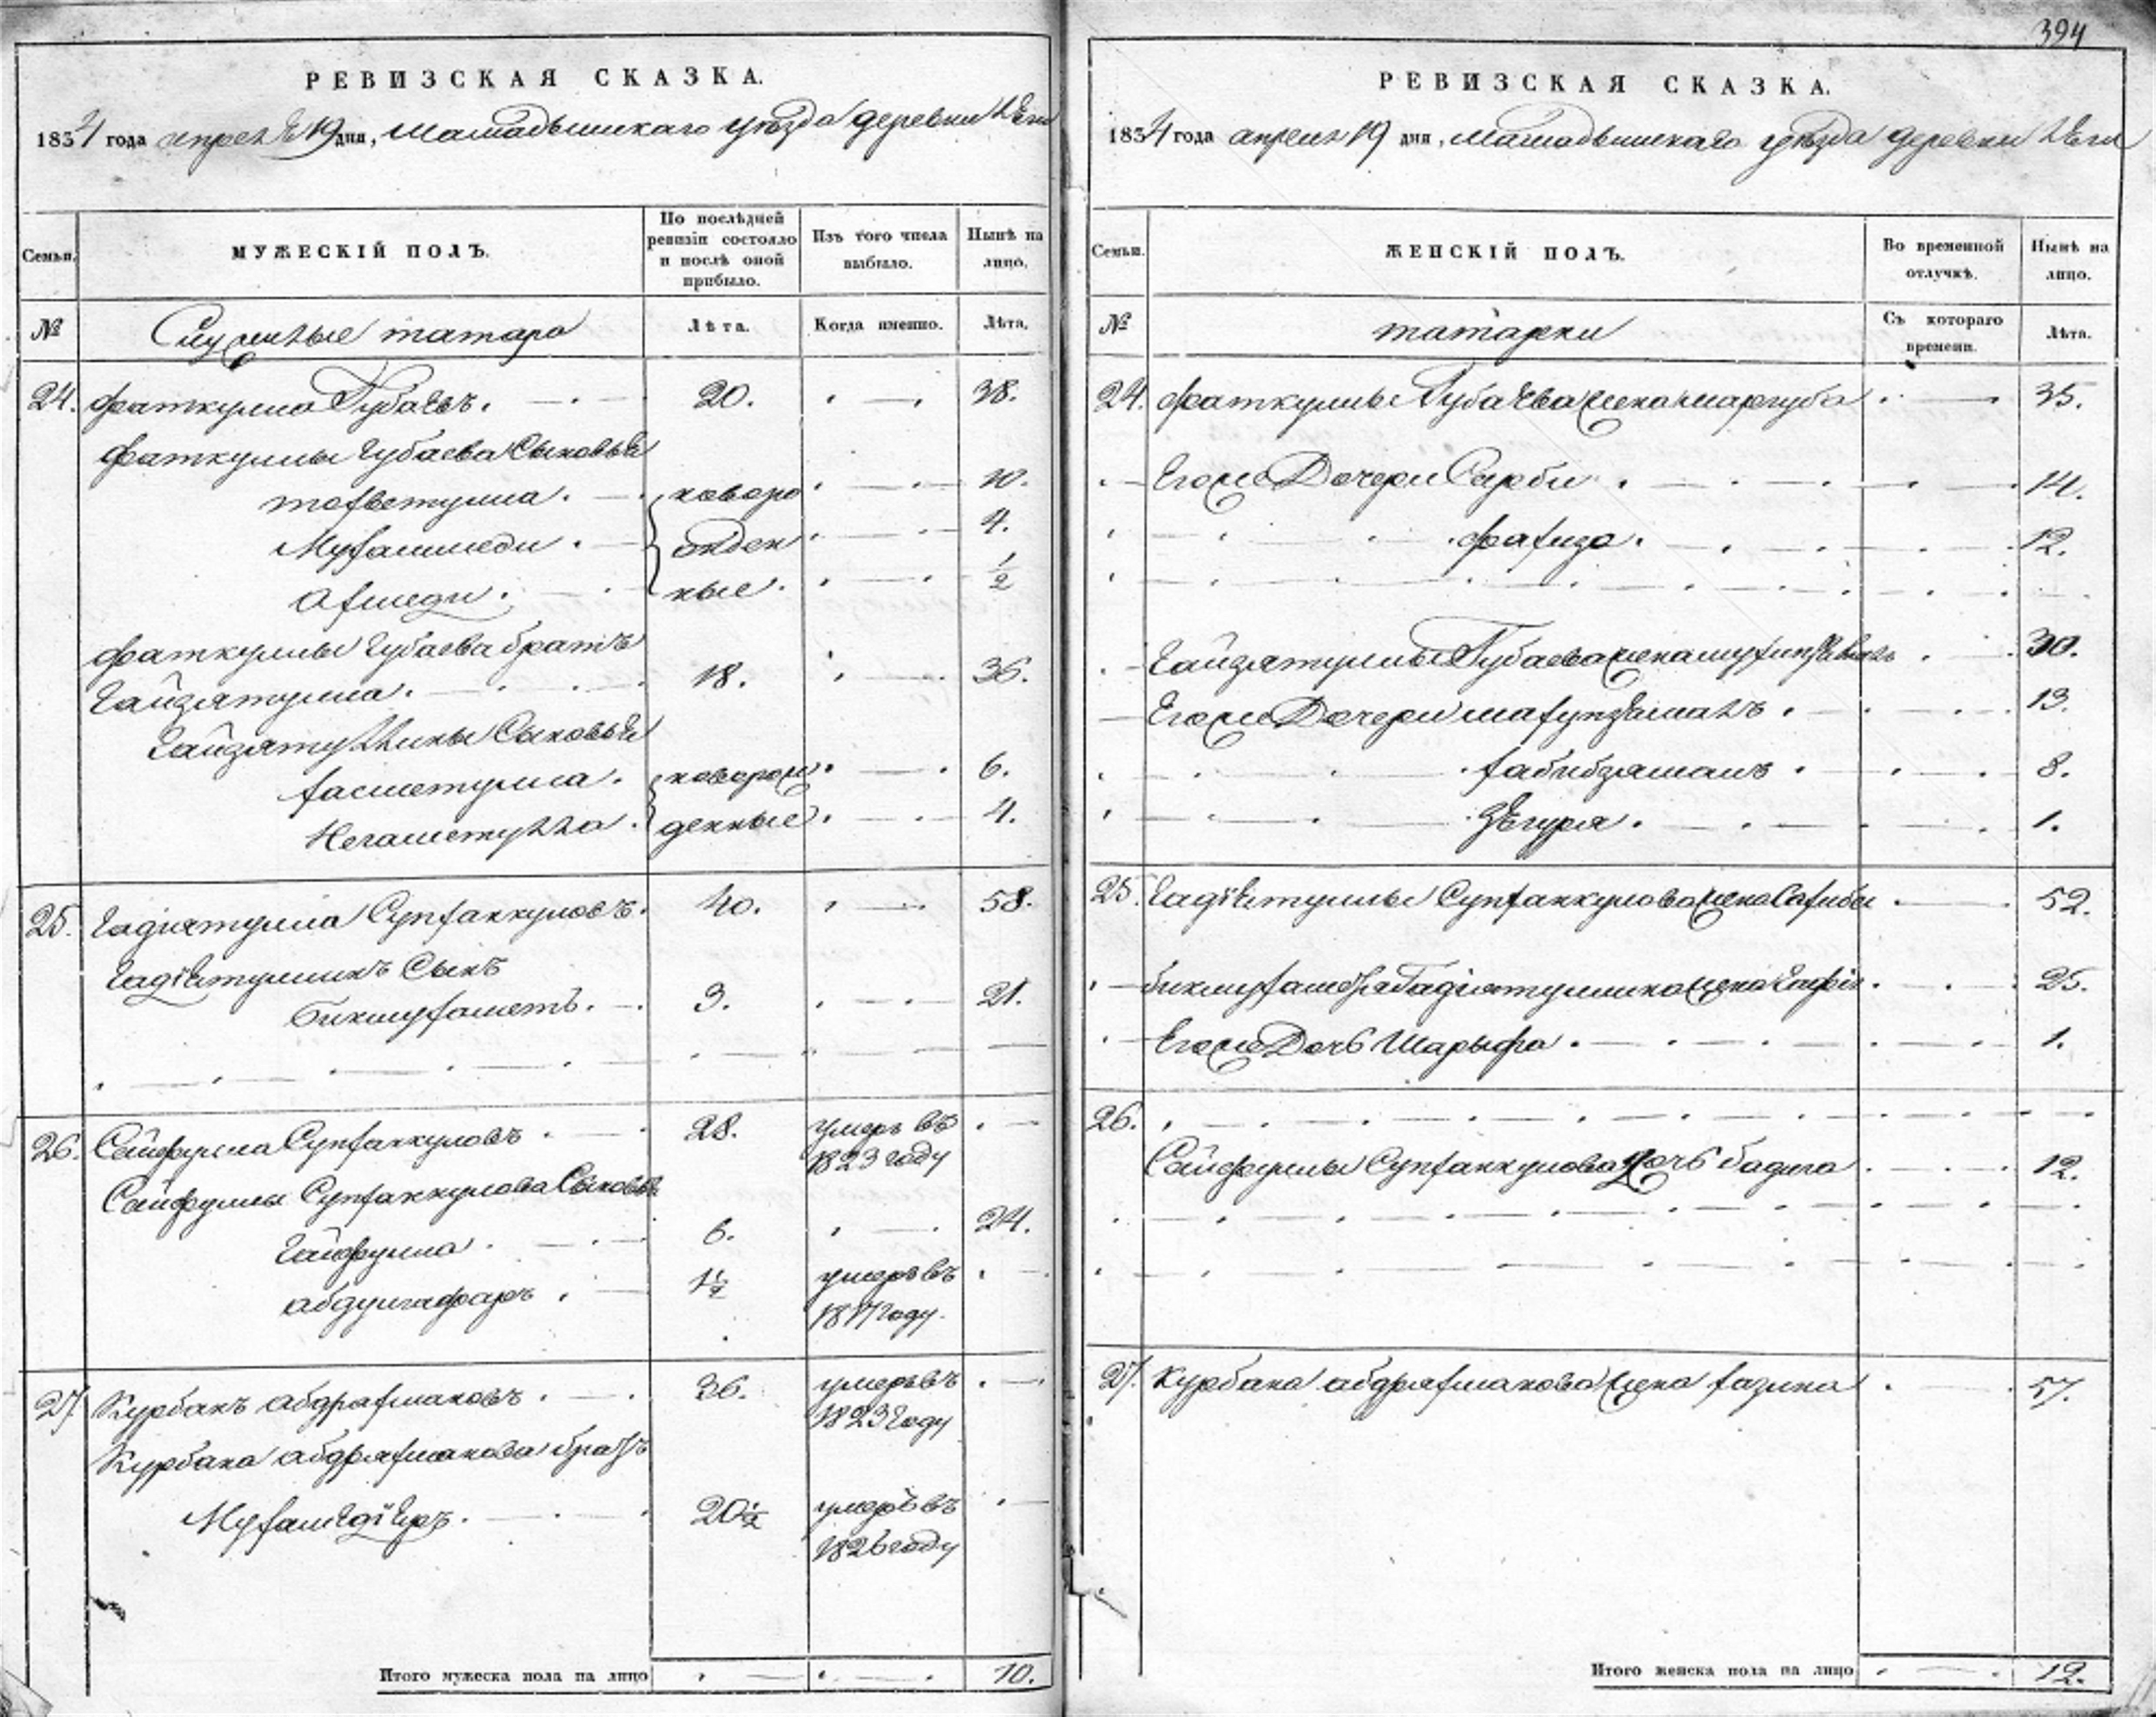 394
РЕВИЗСКАЯ СКАЗКА.
1834 года апреля 19 дня, Мамадышскаго уѣзда деревни
МУЖЕСКІЙ ПОЛЪ.
Семьи.
По послѣдней ревизіи состояло и послѣ оной прибыло.
Изъ того числа выбыло.
Нынѣ на лицо.
№
Служилые татара
Лѣта.
Когда именно.
Лѣта.
24. Фаткулла Губаевъ. 20. 38.
Фаткуллы Губаева Сыновья
новоро 10.
Мухаммеди. жден 4.
Ахмеди. ные. 1/2
Фаткуллы Губаева братъ
Гайзятулла. 18. 36.
Гайзятуллины Сыновья
хасметулла. новорож 6.
Негаметулла. денные. 4.
25. Гадиятулла Супханкуловъ. 40. 58.
Гадіятуллинъ Сынъ
Бикмухаметъ. 3. 21.
26. Сайфулла Супханкуловъ 28. умеръ въ 1823 году
Сайфуллы Супханкулова Сыновья
Гайфулла 6. 24.
абдулгафаръ 1 1/2 умеръ въ 18 году.
27. Курбанъ абдрахмановъ 36. умеръ въ 1823 году
Курбана абдрахманова братъ
20 1/2 умеръ въ 1826 году
Итого мужеска пола на лицо 10.
РЕВИЗСКАЯ СКАЗКА.
1834 года апреля 19 дня, Мамадышскаго уѣзда деревни
Семьи.
ЖЕНСКІЙ ПОЛЪ.
Во временной отлучкѣ.
Нынѣ на лицо.
№
татарки
Съ котораго времени.
Лѣта.
24. Фаткуллы Губаева жена маргуба 35.
Егоже Дочери Сарби 14.
Фахиза. 12.
Гайзятуллы Губаева жена 30.
Егоже Дочери 13.
хабибзямалъ 8.
Зѣгуря. 1.
25. Гадіятуллы Супханкулова жена Сахиба 52.
Гадіятуллина жена 25.
Егоже Дочь Шарыфа. 1.
26.
Сайфуллы Супханкулова Дочь бадига 12.
27. Курбана абдрахманова жена хазина 57.
Итого женска пола на лицо 12.